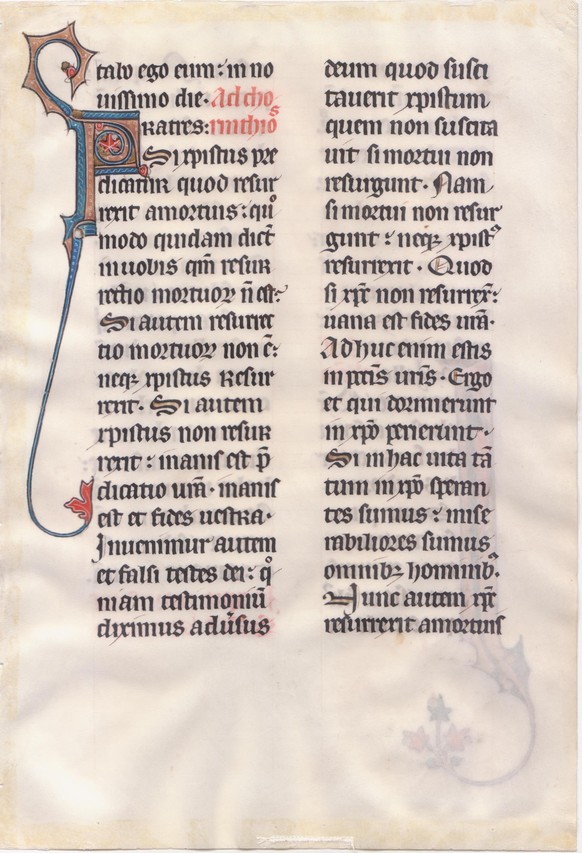 tabo ego eum: in no
uissimo die. Ad cho
ratres: rinthios
Si xpistus pre
dicatur quod resur
rexit amortuis: quo
modo quidam dicūt
inuobis qm̄ resur
rectio mortuoꝝ n̄ est:
Si autem resurrec
tio mortuoꝝ non ē:
neqꝫ xpistus resur
rexit. Si autem
xpistus non resur
rexit: inanis est p̄
dicatio nrā. inanis
est et fides uestra.
Inuenimur autem
et falsi testes dei: qo
niam testimoniū
diximus aduersus
deum quod susci
tauerit xpistum
quem non suscita
uit si mortui non
resurgunt. Nam
si mortui non resur
gunt: neqꝫ xpistꝰ
resurrexit. Quod
si xp̄c non resurrex̄:
uana est fides urā.
Adhuc enim estis
in pctīs urīs. Ergo
et qui dormierunt
in xp̄o perierunt.
Si in hac uita tā
tum in xp̄o speran
tes sumus: mise
rabiliores sumus
omnibꝫ hominibꝫ.
Nunc autem xp̄c
resurrexit amortuis